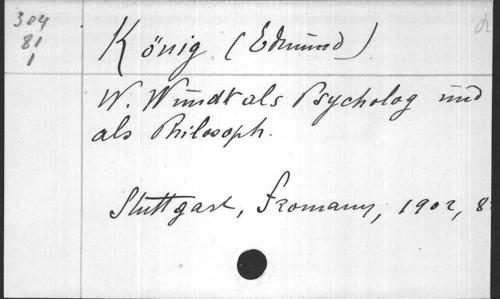 304
81
1
König (Edmund)
W. Wundt als Psycholog und
als Philosoph.
Stuttgart, Fromann, 1902, 8